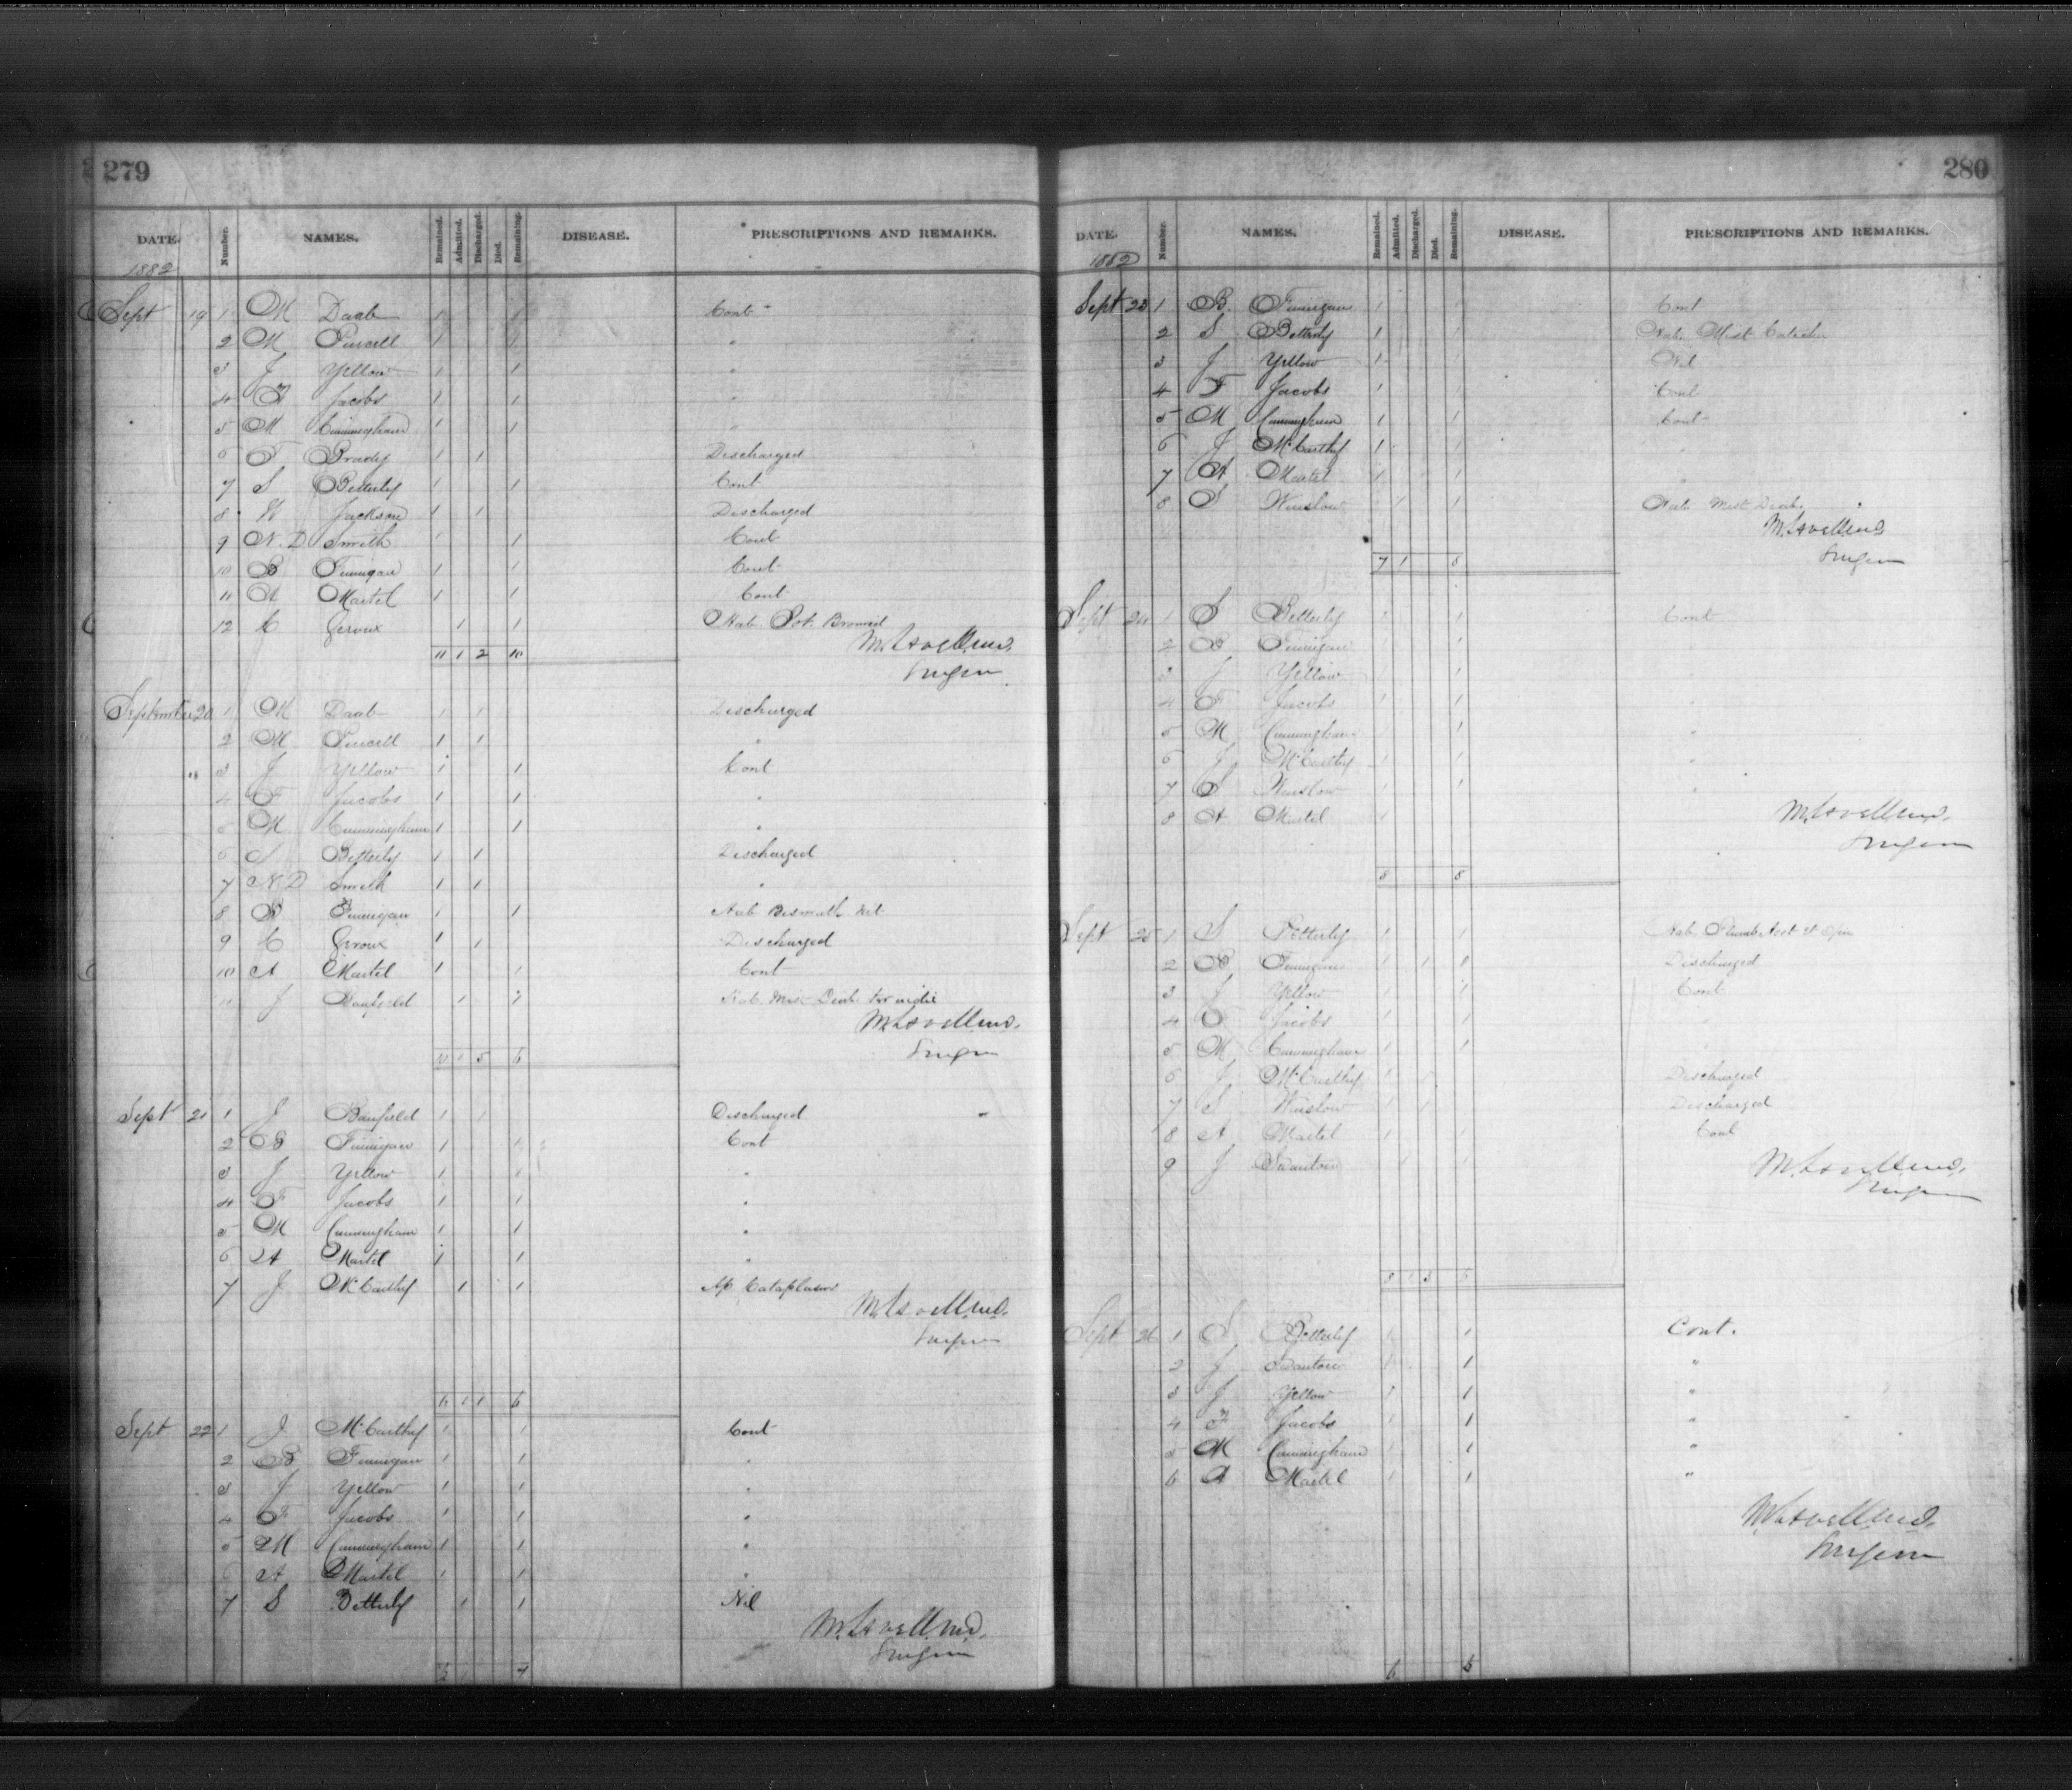 279
DATE. Number. NAMES. Remained. Admitted. Discharged. Died. Remaining. DISEASE. PRESCRIPTIONS AND REMARKS.
1882
Sept 19 1 M Daab 1 1 Cont
2 M Purcell 1 1 "
3 J Yellow 1 1 "
4 F Jacobs 1 1 "
5 M Cunningham 1 1 "
6 F Brady 1 1 Discharged
7 S Betterly 1 1 Cont
8 W Jackson 1 1 Discharged
9 N. D Smith 1 1 Cont
10 B Finnigan 1 1 Cont
11 A Martel 1 1 Cont
12 C Geroux 1 1 Hab. Pot. Bromid
11 1 2 10
Surgeon
September 20 1 M Daab 1 1 Discharged
2 M Purcell 1 1 "
3 J Yellow 1 1 Cont
4 F Jacobs 1 1 "
5 M Cunningham 1 1 "
6 S Betterly 1 1 Discharged
7 N. D Smith 1 1 "
8 B Finnigan 1 1 Hab Bismuth
9 C Geroux 1 1 Discharged
10 A Martel 1 1 Cont
11 J Banfield 1 1 Hab. Mist
10 1 5 6
Surgeon
Sept 21 1 J Banfield 1 1 Discharged
2 B Finnigan 1 1 Cont
3 J Yellow 1 1 "
4 F Jacobs 1 1 "
5 M Cunningham 1 1 "
6 A Martel 1 1 "
7 J McCarthy 1 1 Ap Cataplasm
Surgeon
6 1 1 6
Sept 22 1 J McCarthy 1 1 Cont
2 B Finnigan 1 1 "
3 J Yellow 1 1 "
4 F Jacobs 1 1 "
5 M Cunningham 1 1 "
6 A Martel 1 1 "
7 S Betterly 1 1 Nil
Surgeon
6 1 7
280
DATE. Number. NAMES. Remained. Admitted. Discharged. Died. Remaining. DISEASE. PRESCRIPTIONS AND REMARKS.
1882
Sept 23 1 B. Finnigan 1 1 Cont
2 S Betterly 1 1 Hab. Mist Catechu
3 J Yellow 1 1 Nil
4 F Jacobs 1 1 Cont
5 M Cunningham 1 1 Cont
6 J McCarthy 1 1 "
7 A Martel 1 1 "
8 S Winslow 1 1 Hab Mist
Surgeon
7 1 8
Sept 24 1 S Betterly 1 1 Cont
2 B Finnigan 1
3 J Yellow 1
4 F Jacobs 1 1 "
5 M Cunningham 1 1 "
6 J McCarthy 1 1 "
7 S Winslow 1 1 "
8 A Martel 1
Surgeon
8 8
Sept 25 1 S Betterly 1 1 Hab. Plumb Acet
2 B Finnigan 1 1 Discharged
3 J Yellow 1 1 Cont
4 F Jacobs 1 1 "
5 M Cunningham 1 1
6 J McCarthy 1 Discharged
7 S Winslow 1 1 Discharged
8 A Martel 1 1 Cont
9 J Swanton 1 1
Surgeon
8 1 3
Sept 26 1 S Betterly 1 1 Cont.
2 J Swanton 1 1 "
3 J Yellow 1 1 "
4 F Jacobs 1 1 "
5 M Cunningham 1 1 "
6 A Martel 1 1 "
Surgeon
6 6